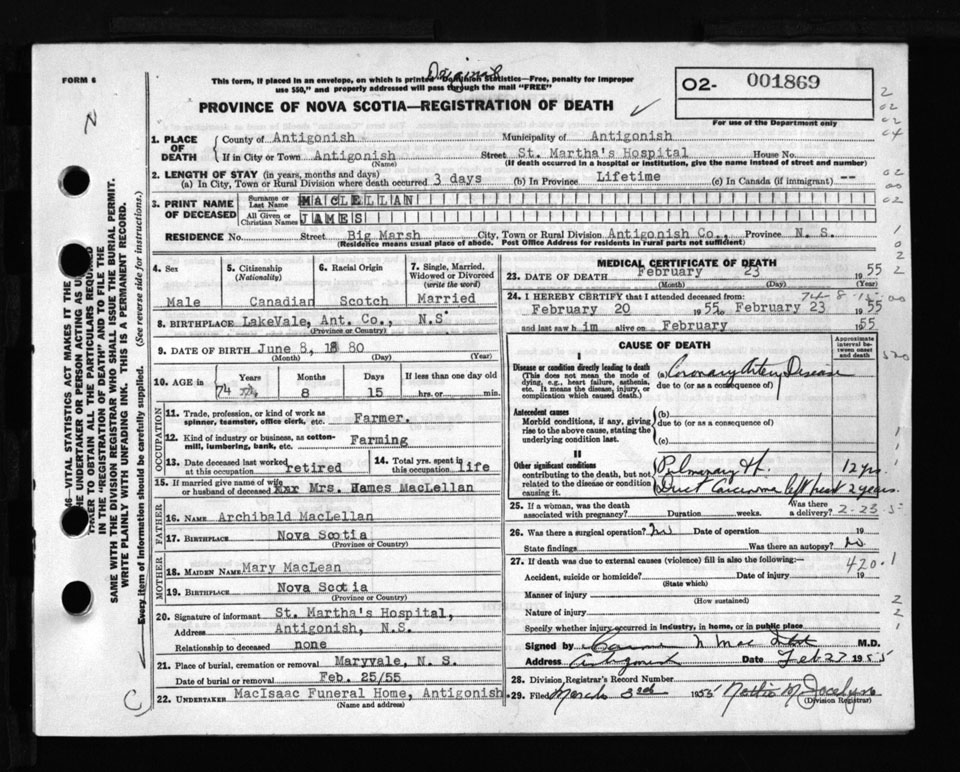 FORM 6
This form, if placed in an envelope, on which is printed Dominion Statistics—Free, penalty for improper
use $50," and properly addressed will pass through the mail "FREE"
PROVINCE OF NOVA SCOTIA—REGISTRATION OF DEATH
O2- 001869
For use of the Department only
1. PLACE OF DEATH { County of Antigonish Municipality of Antigonish
If in City or Town Antigonish (Name) Street St. Martha's Hospital House No.
(If death occurred in a hospital or institution, give the name instead of street and number)
2. LENGTH OF STAY (in years, months and days)
(a) In City, Town or Rural Division where death occurred 3 days (b) In Province Lifetime (c) In Canada (if immigrant) --
3. PRINT NAME OF DECEASED { Surname or Last Name MacLELLAN
All Given or Christian Names JAMES
RESIDENCE No. Street Big Marsh City, Town or Rural Division Antigonish Co., Province N. S.
(Residence means usual place of abode. Post Office Address for residents in rural parts not sufficient)
4. Sex Male
5. Citizenship (Nationality) Canadian
6. Racial Origin Scotch
7. Single, Married, Widowed or Divorced (write the word) Married
8. BIRTHPLACE LakeVale, Ant. Co., N.S.
(Province or Country)
9. DATE OF BIRTH June 8, 1880
(Month) (Day) (Year)
10. AGE in Years 74 Months 8 Days 15 If less than one day old hrs. or min.
OCCUPATION
11. Trade, profession, or kind of work as spinner, teamster, office clerk, etc. Farmer.
12. Kind of industry or business, as cotton-mill, lumbering, bank, etc. Farming
13. Date deceased last worked at this occupation retired
14. Total yrs. spent in this occupation life
15. If married give name of wife or husband of deceased Mrs. Hames MacLellan
FATHER
16. NAME Archibald MacLellan
17. BIRTHPLACE Nova Scotia
(Province or Country)
MOTHER
18. MAIDEN NAME Mary MacLean
19. BIRTHPLACE Nova Scotia
(Province or Country)
20. Signature of informant St. Martha's Hospital,
Address Antigonish, N.S.
Relationship to deceased none
21. Place of burial, cremation or removal Maryvale, N. S.
Date of burial or removal Feb. 25/55
22. UNDERTAKER MacIsaac Funeral Home, Antigonish
(Name and address)
MEDICAL CERTIFICATE OF DEATH
23. DATE OF DEATH February 23 1955
(Month) (Day) (Year)
24. I HEREBY CERTIFY that I attended deceased from:
February 20 1955 February 23 1955
and last saw him alive on February 1955
CAUSE OF DEATH
Approximate interval between onset and death
I
Disease or condition directly leading to death
(This does not mean the mode of dying, e.g., heart failure, asthenia, etc. It means the disease, injury, or complication which caused death.)
(a) Coronary Artery Disease
due to (or as a consequence of)
Antecedent causes
Morbid conditions, if any, giving rise to the above cause, stating the underlying condition last.
(b)
due to (or as a consequence of)
(c)
II
Other significant conditions
contributing to the death, but not related to the disease or condition causing it.
Pulmonary 12 yrs.
Duct Carcinoma left breast 2 years.
25. If a woman, was the death associated with pregnancy? Duration weeks. Was there a delivery?
2-23-5
26. Was there a surgical operation? No Date of operation 19
State findings Was there an autopsy? No
27. If death was due to external causes (violence) fill in also the following:—
420.1
Accident, suicide or homicide? Date of injury 19
(State which)
Manner of injury
(How sustained)
Nature of injury
Specify whether injury occurred in industry, in home, or in public place
Signed by M.D.
Address Antigonish Date Feb 27 1955
28. Division Registrar's Record Number
29. Filed March 3rd 1955
(Division Registrar)
SAME WITH THE DIVISION REGISTRAR WHO SHALL ISSUE THE BURIAL PERMIT.
WRITE PLAINLY WITH UNFADING INK. THIS IS A PERMANENT RECORD.
Every item of information should be carefully supplied. (See reverse side for instructions.)